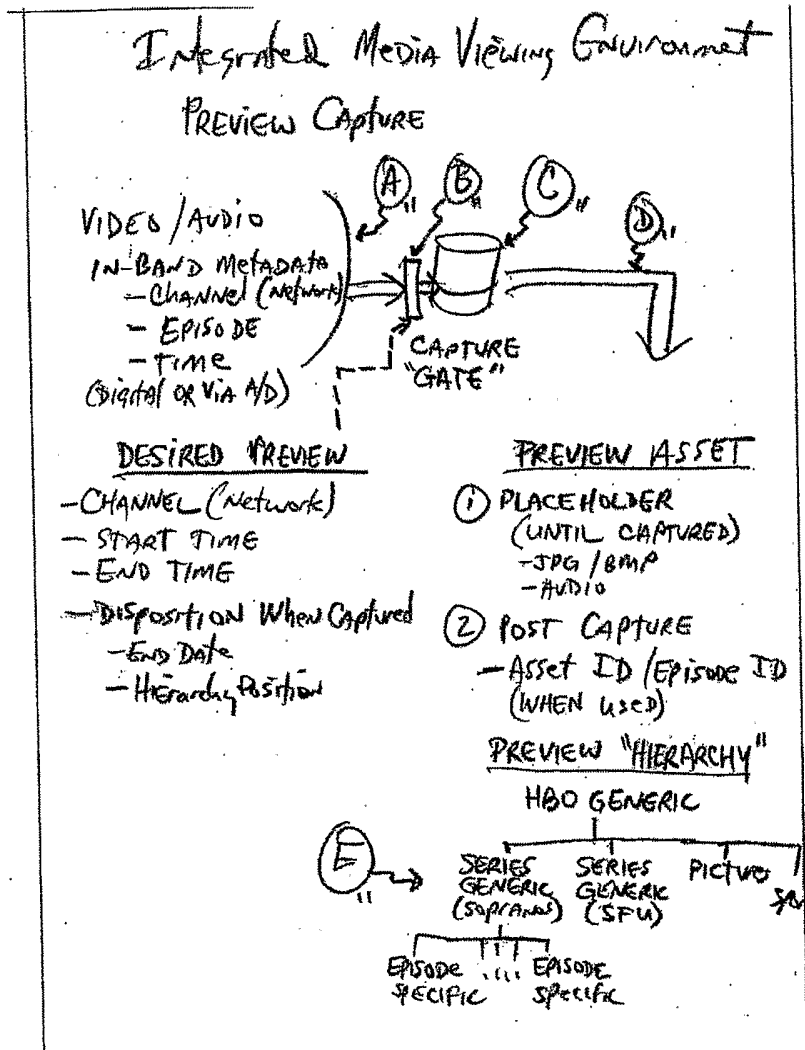 Integrated Media Viewing Environmet
PREVIEW CAPTURE
A"
B"
C"
D"
VIDEO/AUDIO
IN-BAND METADATA
- CHANNEL (Network)
- EPISODE
- TIME
(Digital OR VIA A/D)
CAPTURE
"GATE"
DESIRED PREVIEW
- CHANNEL (Network)
- START TIME
- END TIME
- DISPOSITION When Captured
- END DATE
- Hierarchy Position
PREVIEW ASSET
1 PLACEHOLDER
(UNTIL CAPTURED)
- JPG/BMP
- AUDIO
2 POST CAPTURE
- Asset ID/EPISODE ID
(WHEN USED)
PREVIEW "HIERARCHY"
HBO GENERIC
E"
SERIES
GENERIC
(SOPRANOS)
SERIES
GENERIC
(SFU)
PICTURES
EPISODE
SPECIFIC
....
EPISODE
SPECIFIC